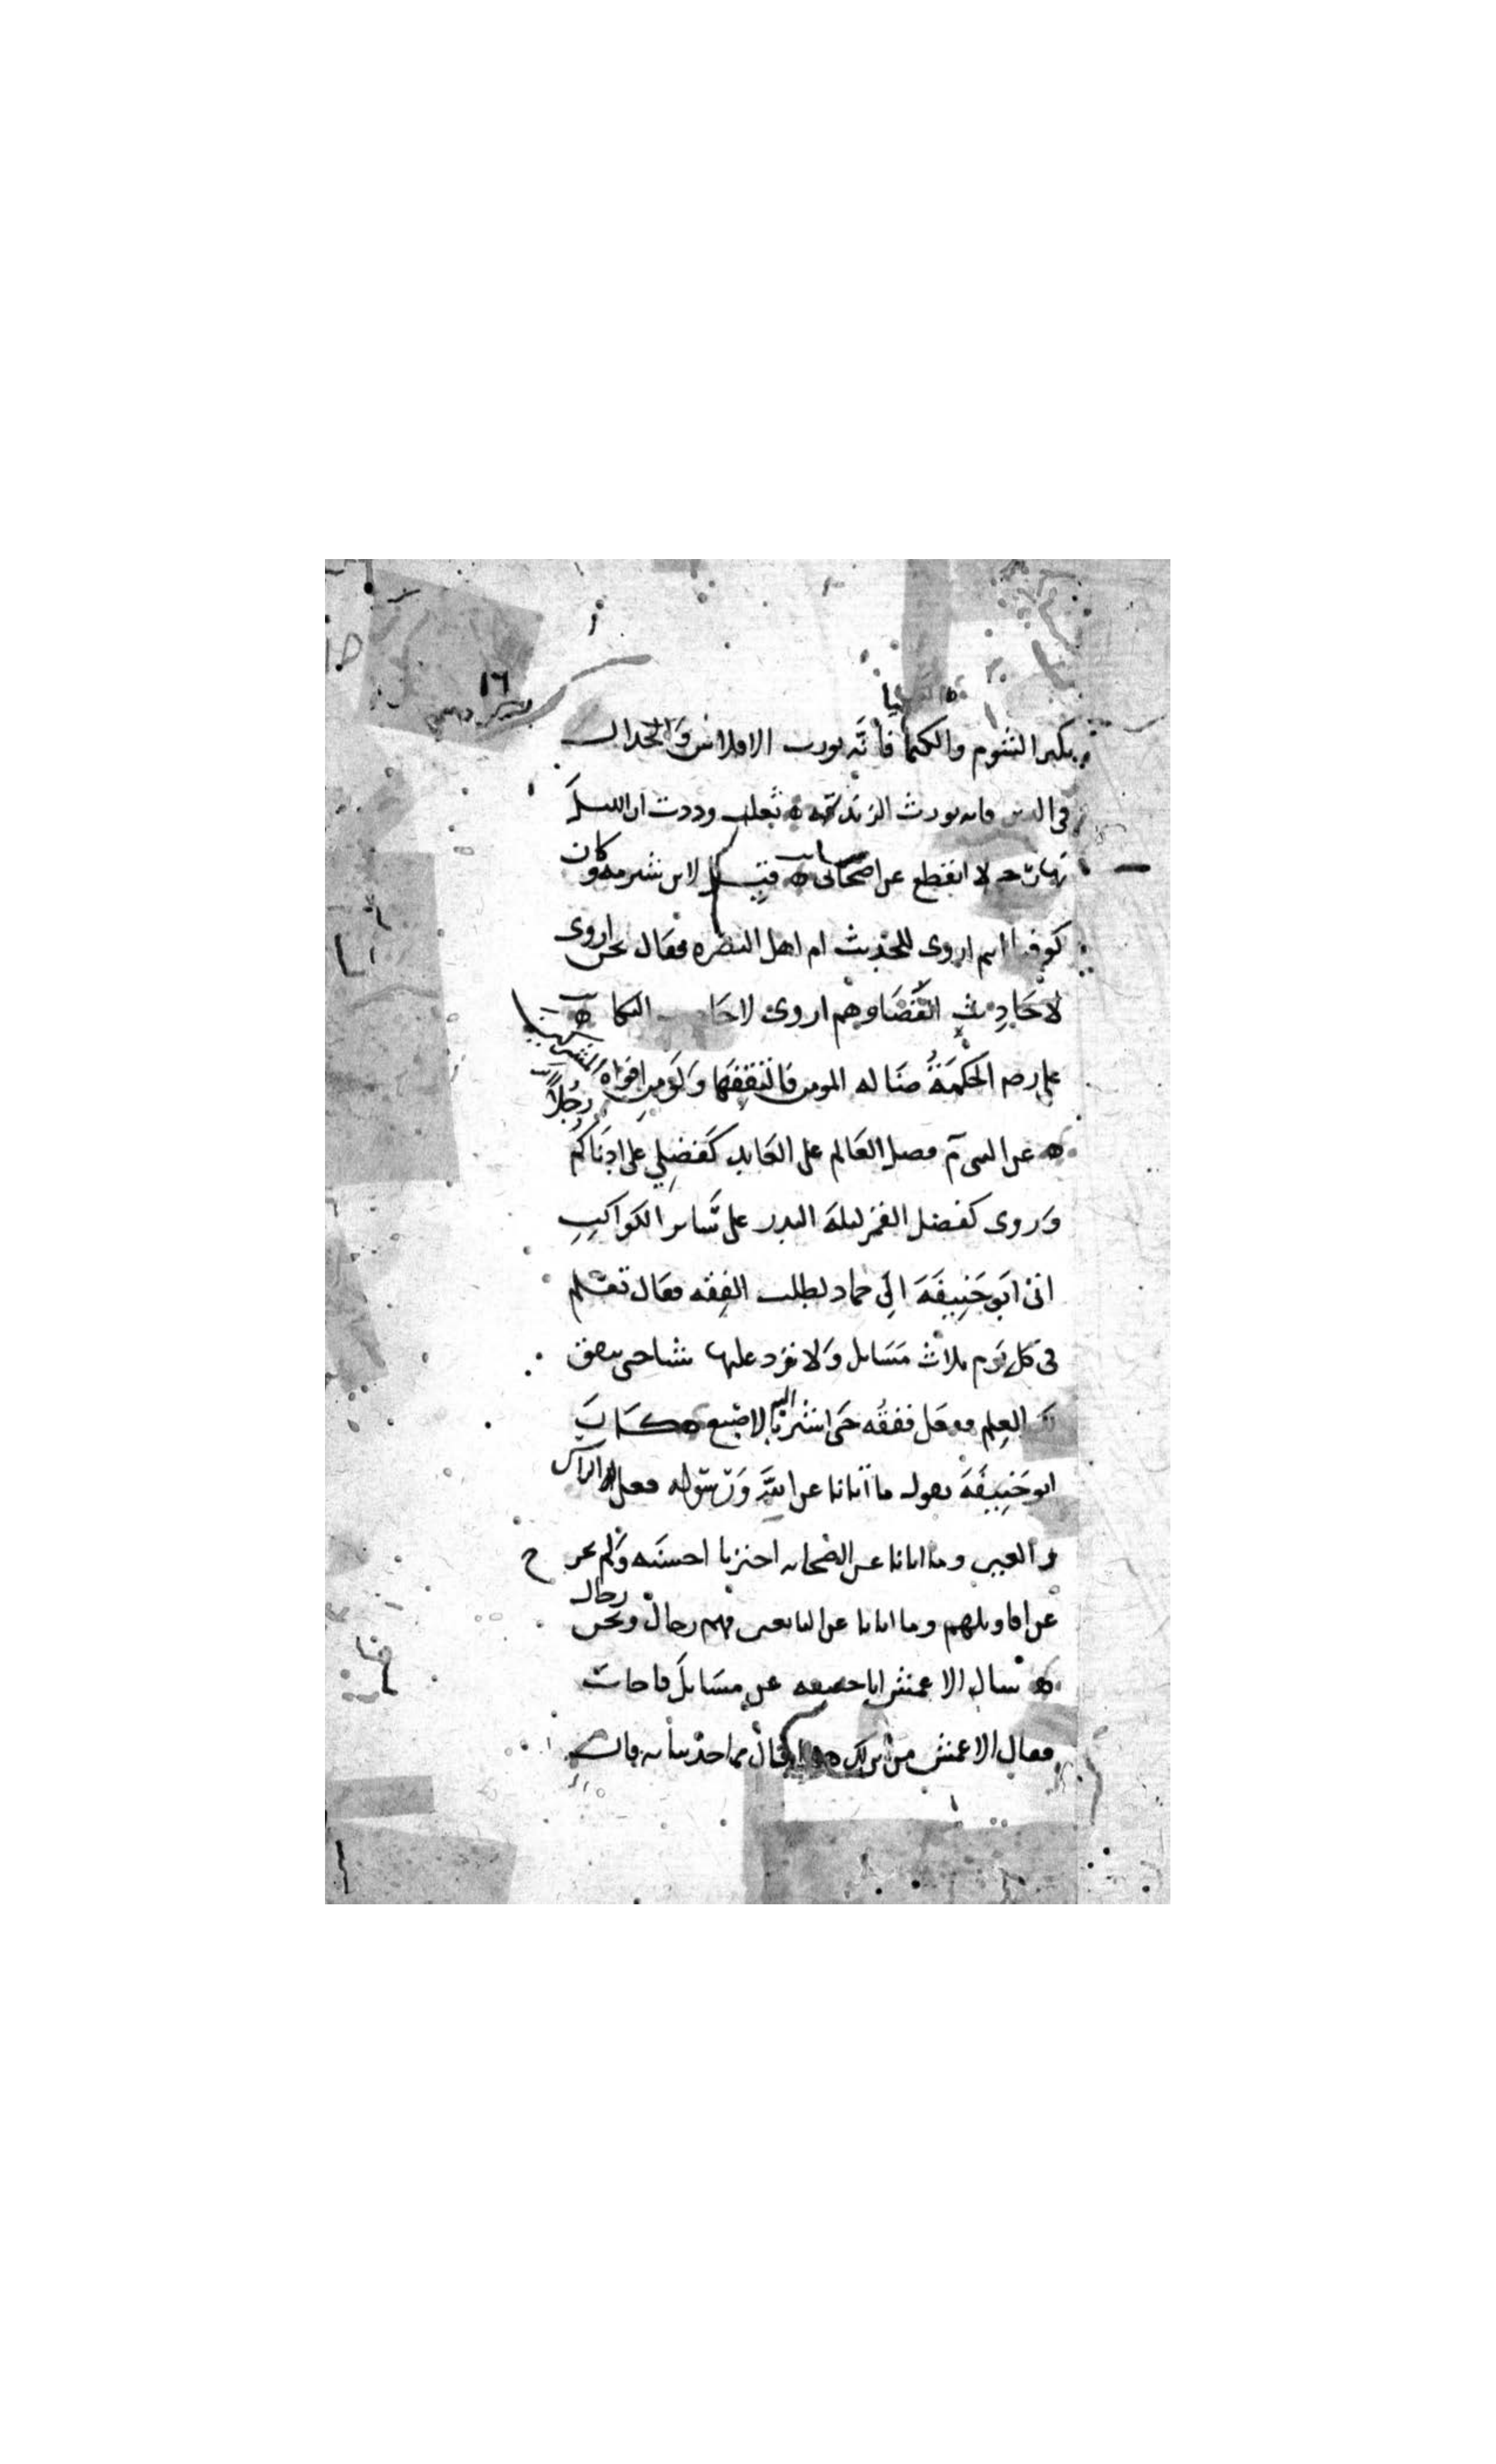 ١٦
والكيميا فانه يورث الافلاس والجدال
في الدين فانه يورث الزندقة ه ثعلب وددت ان الليل
نهار حتى لا انقطع عن اصحابي ه قيل لابن شبرمة وكان
كوفيا انتم اروى للحديث ام اهل البصره فقال نحن اروى
لاحاديث القضا وهم اروى لاحاديث البكا ه
علي رضه الحكمة ضاله المومن فالتقفها ولو من افواه المشركين
ه عن النبي م فضل العالم على العابد كفضلي على ادناكم رجلا
وروى كفضل القمر ليلة البدر على سائر الكواكب
اتى ابو حنيفة الى حماد لطلب الفقه فقال تعلم
في كل يوم ثلاث مسايل ولا تزد عليها شيا حتى يتفق
لك العلم ففعل ففقه حتى اشير اليه بالاصابع ه كان
ابو حنيفة يقول ما اتانا عن الله ورسوله فعلى الراس
والعين وما اتانا عن الصحابه اخترنا احسنه ولم نخرج
عن اقاويلهم وما اتانا عن التابعين فهم رجال ونحن رجال
ه سال الاعمش ابا حنيفه عن مسايل فاجاب
فقال الاعمش من اين لك ه قال مما حدثتنا به فان